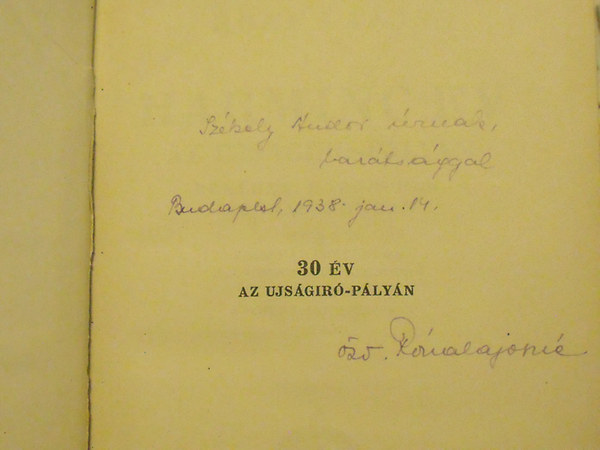 Székely Andor úrnak,
barátsággal
Budapest, 1938. jan. 14.
30 ÉV
AZ UJSÁGIRÓ-PÁLYÁN
özv. Rónalajosné